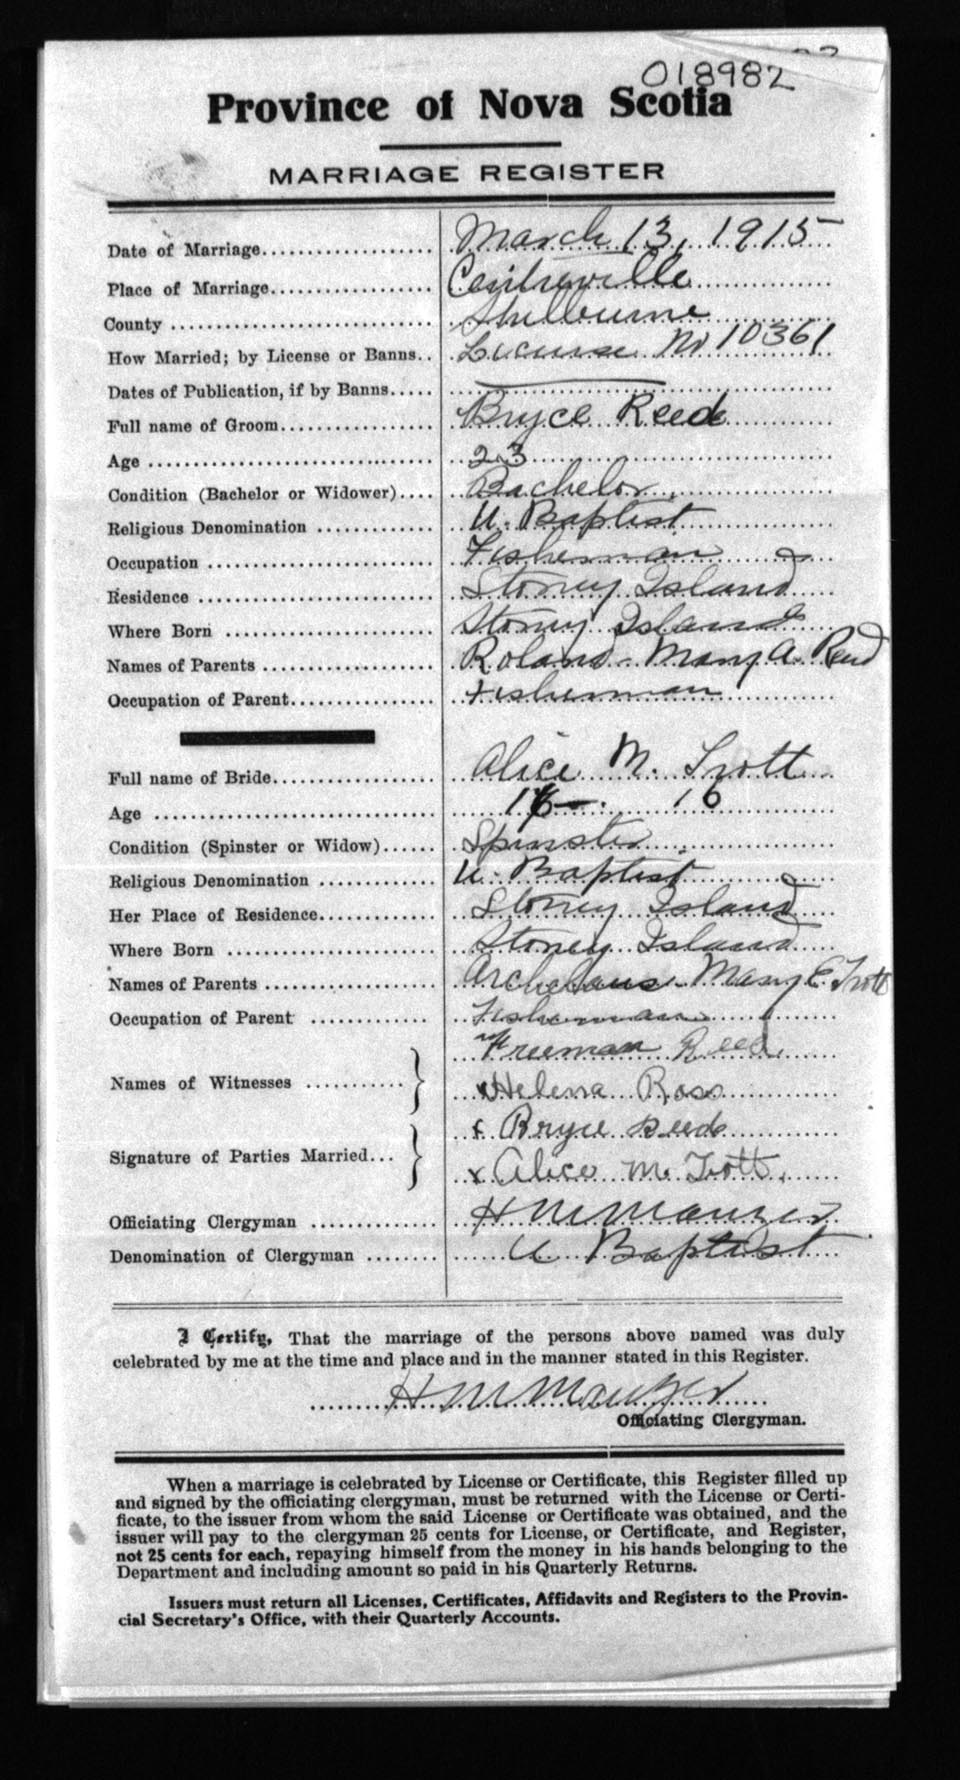 018982
Province of Nova Scotia
MARRIAGE REGISTER
Date of Marriage.................... March 13, 1915
Place of Marriage.................. Centreville
County .............................. Shelburne
How Married; by License or Banns.. License No 10361
Dates of Publication, if by Banns..... ———
Full name of Groom................. Bryce Reed
Age ................................ 23
Condition (Bachelor or Widower).... Bachelor
Religious Denomination ............. U. Baptist
Occupation ......................... Fisherman
Residence .......................... Stoney Island
Where Born ....................... Stoney Island
Names of Parents ................... Roland - Mary A. Reed
Occupation of Parent................ Fisherman
Full name of Bride.................. Alice M. Trott
Age ................................ 16
Condition (Spinster or Widow)...... Spinster
Religious Denomination ............. U. Baptist
Her Place of Residence............. Stoney Island
Where Born ....................... Stoney Island
Names of Parents ................... Archelaus - Mary E. Trott
Occupation of Parent ............. Fisherman
Freeman Reed
Names of Witnesses ........... x Helena Ross
x Bryce Reed
Signature of Parties Married... x Alice M. Trott.
Officiating Clergyman ............. H M Manzer
Denomination of Clergyman ........ U Baptist
I Certify, That the marriage of the persons above named was duly
celebrated by me at the time and place and in the manner stated in this Register.
H M Manzer
Officiating Clergyman.
When a marriage is celebrated by License or Certificate, this Register filled up
and signed by the officiating clergyman, must be returned with the License or Certi-
ficate, to the issuer from whom the said License or Certificate was obtained, and the
issuer will pay to the clergyman 25 cents for License, or Certificate, and Register,
not 25 cents for each, repaying himself from the money in his hands belonging to the
Department and including amount so paid in his Quarterly Returns.
Issuers must return all Licenses, Certificates, Affidavits and Registers to the Provin-
cial Secretary's Office, with their Quarterly Accounts.